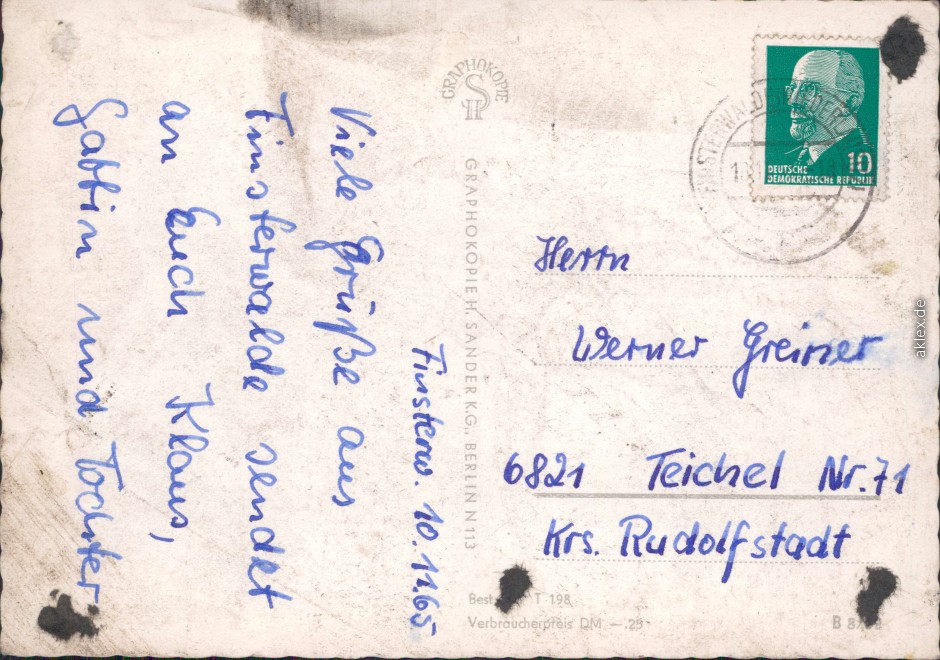 Finsterw. 10.11.65
Viele Grüße aus
Finsterwalde sendet
an Euch Klaus,
Gattin und Tochter
GRAPHOKOPIE
H S
GRAPHOKOPIE H. SANDER KG., BERLIN N 113
DEUTSCHE
DEMOKRATISCHE REPUBLIK
10
Herrn
Werner Greiner
6821 Teichel Nr. 71
Krs. Rudolfstadt
T 198
Verbraucherpreis DM —.25
aklex.de